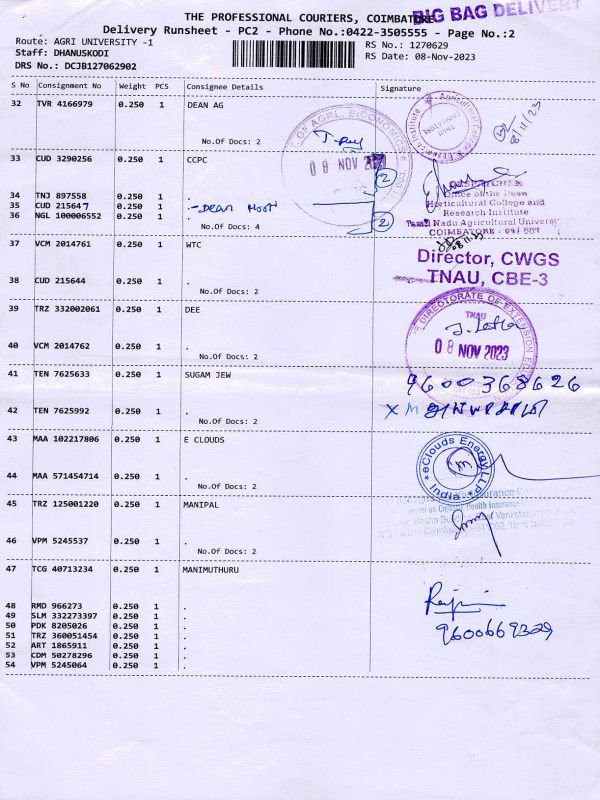 BIG BAG DELIVERY
THE PROFESSIONAL COURIERS, COIMBATORE
Delivery Runsheet - PC2 - Phone No.:0422-3505555 - Page No.:2
Route: AGRI UNIVERSITY -1
RS No.: 1270629
Staff: DHANUSKODI
RS Date: 08-Nov-2023
DRS No.: DCJB127062902
S No Consignment No Weight PCS Consignee Details Signature
32 TVR 4166979 0.250 1 DEAN AG
No.Of Docs: 2
OF AGRL. ECONOMICS
08 NOV
8/11/23
33 CUD 3290256 0.250 1 CCPC
2
34 TNJ 897558 0.250 1 .
35 CUD 215647 0.250 1 .-Dean Hort
36 NGL 100006552 0.250 1 . 2
No.Of Docs: 4
Office of the Dean
Horticultural College and
Research Institute
Tamil Nadu Agricultural University
COIMBATORE - 641 003
37 VCM 2014761 0.250 1 WTC
08.11.23
Director, CWGS
TNAU, CBE-3
38 CUD 215644 0.250 1 .
No.Of Docs: 2
39 TRZ 332002061 0.250 1 DEE
DIRECTORATE OF EXTENSION
TNAU
08 NOV 2023
40 VCM 2014762 0.250 1 .
No.Of Docs: 2
41 TEN 7625633 0.250 1 SUGAM JEW
9600368626
42 TEN 7625992 0.250 1 .
No.Of Docs: 2
43 MAA 102217806 0.250 1 E CLOUDS
eClouds Energy LLP
India
44 MAA 571454714 0.250 1 .
No.Of Docs: 2
45 TRZ 125001220 0.250 1 MANIPAL
46 VPM 5245537 0.250 1 .
No.Of Docs: 2
47 TCG 40713234 0.250 1 MANIMUTHURU
48 RMD 966273 0.250 1 .
49 SLM 332273397 0.250 1 .
50 PDK 8205026 0.250 1 .
9600669329
51 TRZ 360051454 0.250 1 .
52 ART 1865911 0.250 1 .
53 CDM 50278296 0.250 1 .
54 VPM 5245064 0.250 1 .